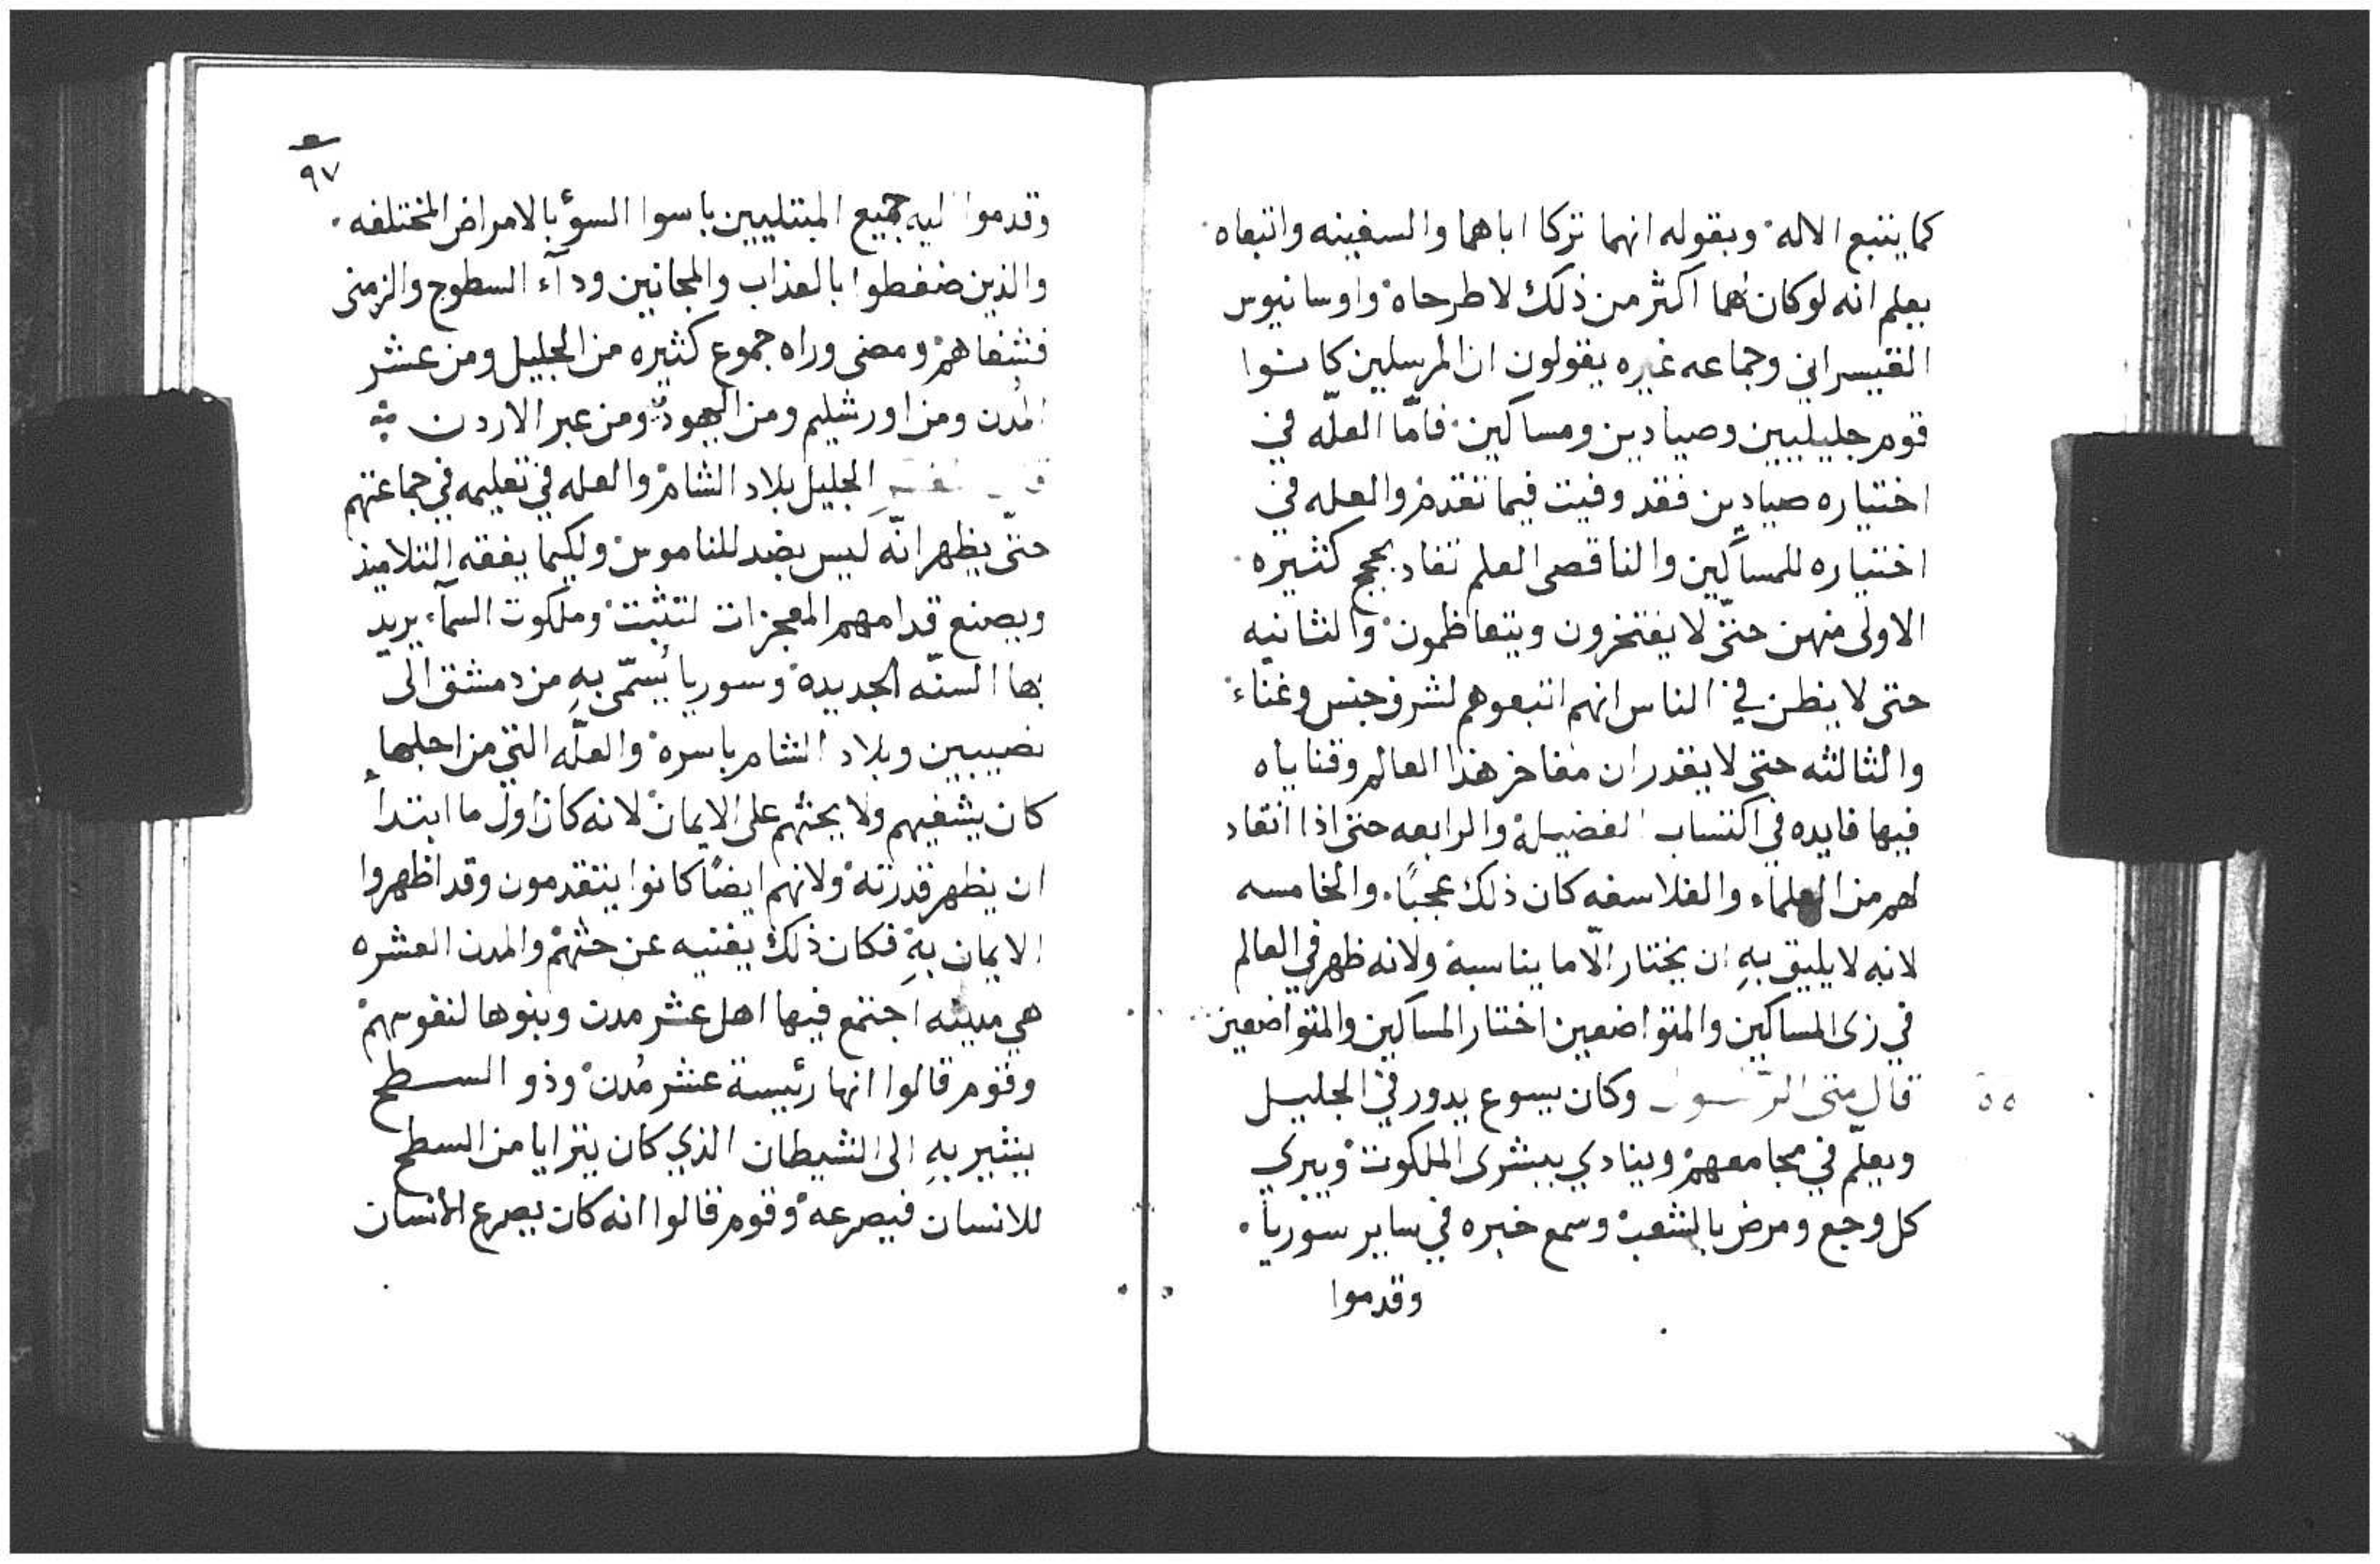 كما يتبع الاله وبقوله انهما تركا اباهما والسفينه واتبعاه
يعلم انه لو كان لهما اكثر من ذلك لاطرحاه واوسانيوس
القيسراني وجماعه غيره يقولون ان المرسلين كانوا
قوم جليليين وصيادين ومساكين فامّا العلّه في
اختياره صيادين فقد وفيت فيما تقدم والعله في
اختياره للمساكين والناقصى العلم تفاد بحجج كثيره
الاولى منهن حتّى لا يفتخرون ويتعاظمون والثانيه
حتى لا يظن في الناس انهم اتبعوهم لشرف جنس وغناء
والثالثه حتى لا يقدر ان مفاخر هذا العالم وقناياه
فيها فايده في اكتساب الفضيلة والرابعه حتى اذا انقاد
لهم من العلماء والفلاسفه كان ذلك عجبًا والخامسه
لانه لا يليق بهِ ان يختار الّا ما يناسبة ولانه ظهر في العالم
في زى المساكين والمتواضعين اختار المساكين والمتواضعين
قال متى الرسول وكان يسوع يدور في الجليل
ويعلّم في مجامعهم وينادي ببشرى الملكوت ويبري
كل وجع ومرض بالشعب وسمع خبره في ساير سوريا
وقدموا
٩٧
وقدموا اليه جميع المبتليين باسوا السوٴ بالامراض المختلفه
والذين ضغطوا بالعذاب والمجانين وداء السطوح والزمنى
فشفاهم ومضى وراه جموع كثيره من الجليل ومن عشر
المُدن ومن اورشليم ومن اليهوديّة ومن عبر الاردن
الجليل بلاد الشام والعله في تعليمه في جماعتهم
حتّى يظهر انّه ليس بضد للناموس ولكيما يفقه التلاميذ
ويصنع قدامهم المعجزات لتثبت وملكوت السمآء يريد
بها السنّه الجديده وسوريا يُسمّى بهِ من دمشق الى
نصيبين وبلاد الشام باسره والعلّه التي من اجلها
كان يشفيهم ولا يحثهم على الايمان لانه كان اول ما ابتدأ
ان يظهر قدرته ولانهم ايضًا كانوا يتقدمون وقد اظهروا
الايمان بهِ فكان ذلك يغنيه عن حثهم والمدن العشره
هي مدينه اجتمع فيها اهل عشر مدن وبنوها لنفوسهم
وقوم قالوا انها رئيسة عشر مُدن وذو السطح
يشير بهِ الى الشيطان الذي كان يترايا من السطح
للانسان فيصرعه وقوم قالوا انه كان يصرع الانسان